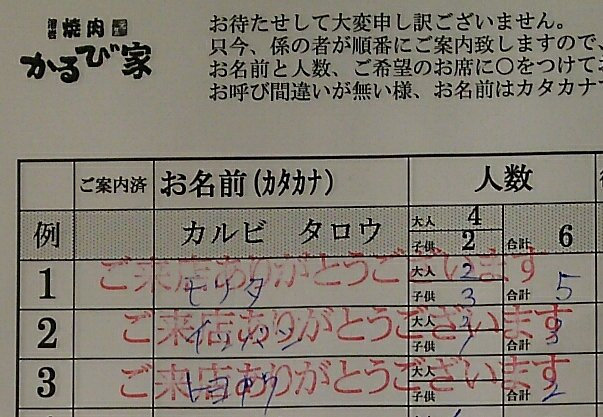 焼肉
かるび家
お待たせして大変申し訳ございません。
只今、係の者が順番にご案内致しますので、
お名前と人数、ご希望のお席に○をつけてお
お呼び間違いが無い様、お名前はカタカナで
ご案内済 お名前(カタカナ) 人数
例 カルビ タロウ 大人 4 子供 2 合計 6
1 モリタ 大人 2 子供 3 合計 5
ご来店ありがとうございます
2 大人 2 子供 1 合計 3
ご来店ありがとうございます
3 大人 子供 合計 2
ご来店ありがとうございます